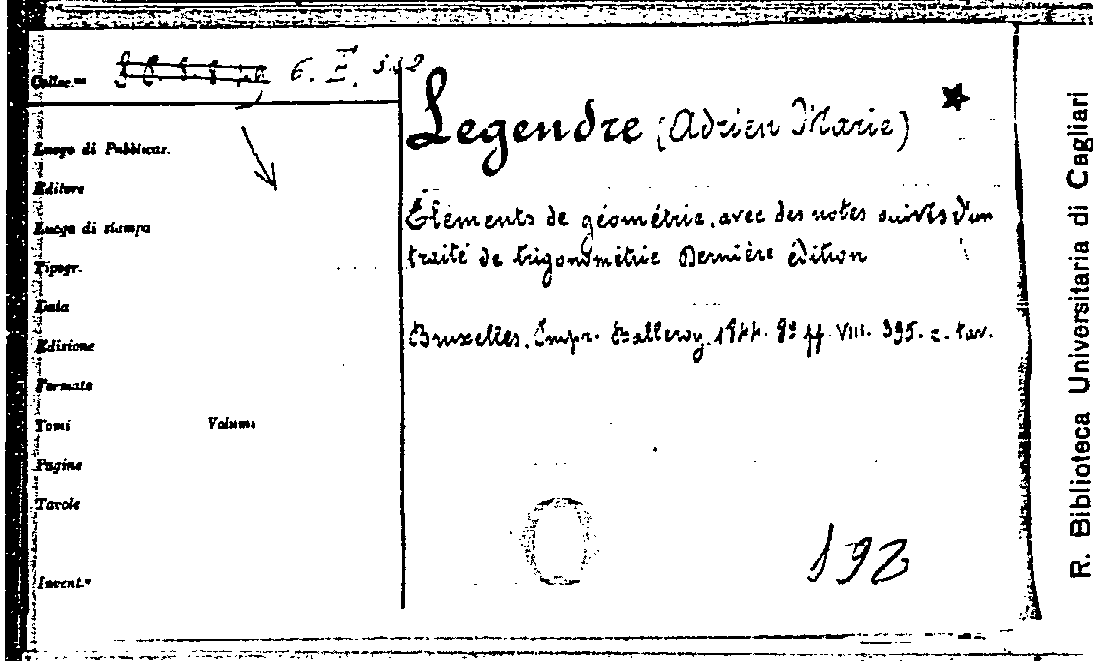 Colloc.ne 6. E.
Legendre (Adrien Marie)
Luogo di Pubblicaz.
Editore
Luogo di stampa
Tipogr.
Data
Edizione
Formato
Tomi Volumi
Pagine
Tavole
Invent.º
Éléments de géométrie, avec des notes suivis d'un
traité de trigonométrie Dernière édition
Bruxelles. Impr. Balleroy. 1844. 8º pp. VIII. 395. c. tav.
192
R. Biblioteca Universitaria di Cagliari